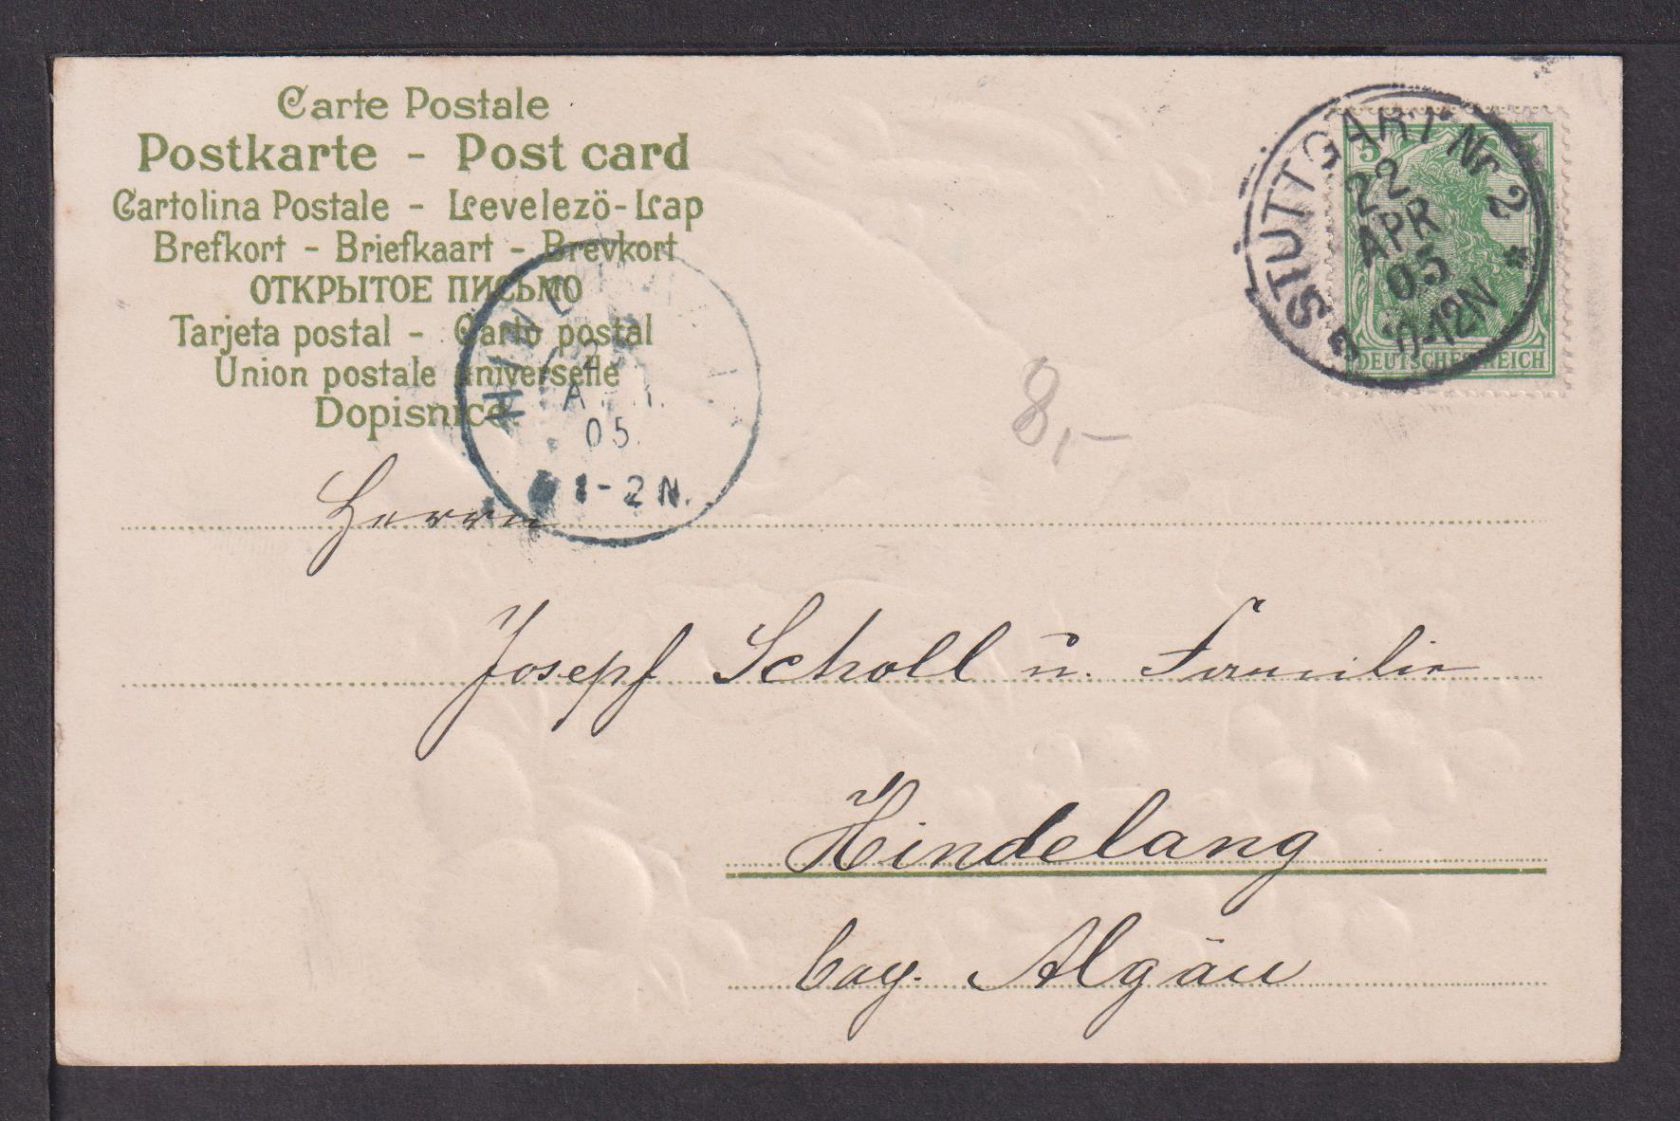 Carte Postale
Postkarte - Post card
Cartolina Postale - Levelezö-Lap
Brefkort - Briefkaart - Brevkort
ОТКРЫТОЕ ПИСЬМО
Tarjeta postal - Carto postal
Union postale universelle
Dopisnice
STUTTGART Nr 2
22
APR
05
10-12N
5
DEUTSCHES REICH
HIND
05.
1-2N.
8,-
Herrn
Josepf Scholl u. Familie
Hindelang
bay. Algäu